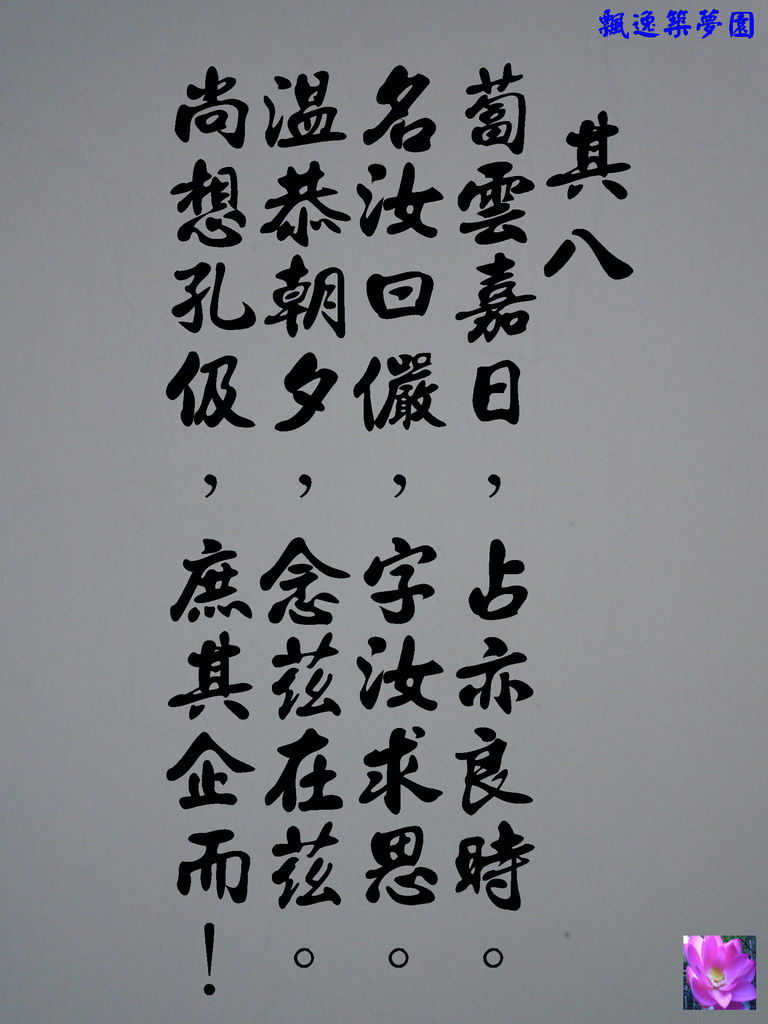 飄逸築夢園
其八
蔔雲嘉日，占亦良時。
名汝曰儼，字汝求思。
溫恭朝夕，念茲在茲。
尚想孔伋，庶其企而！